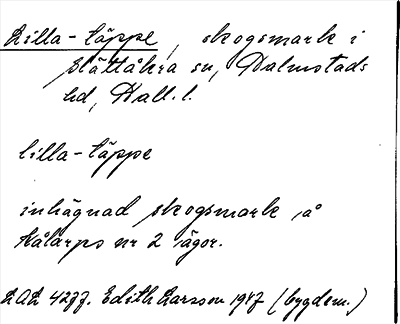 Lilla-täppe, skogsmark i
Slättåkra sn, Halmstads
hd, Hall. l.
lilla-täppe
inhägnad skogsmark på
Kålarps nr 2 ägor.
LAL 4277. Edith Larsson 1947 (bygdem.)